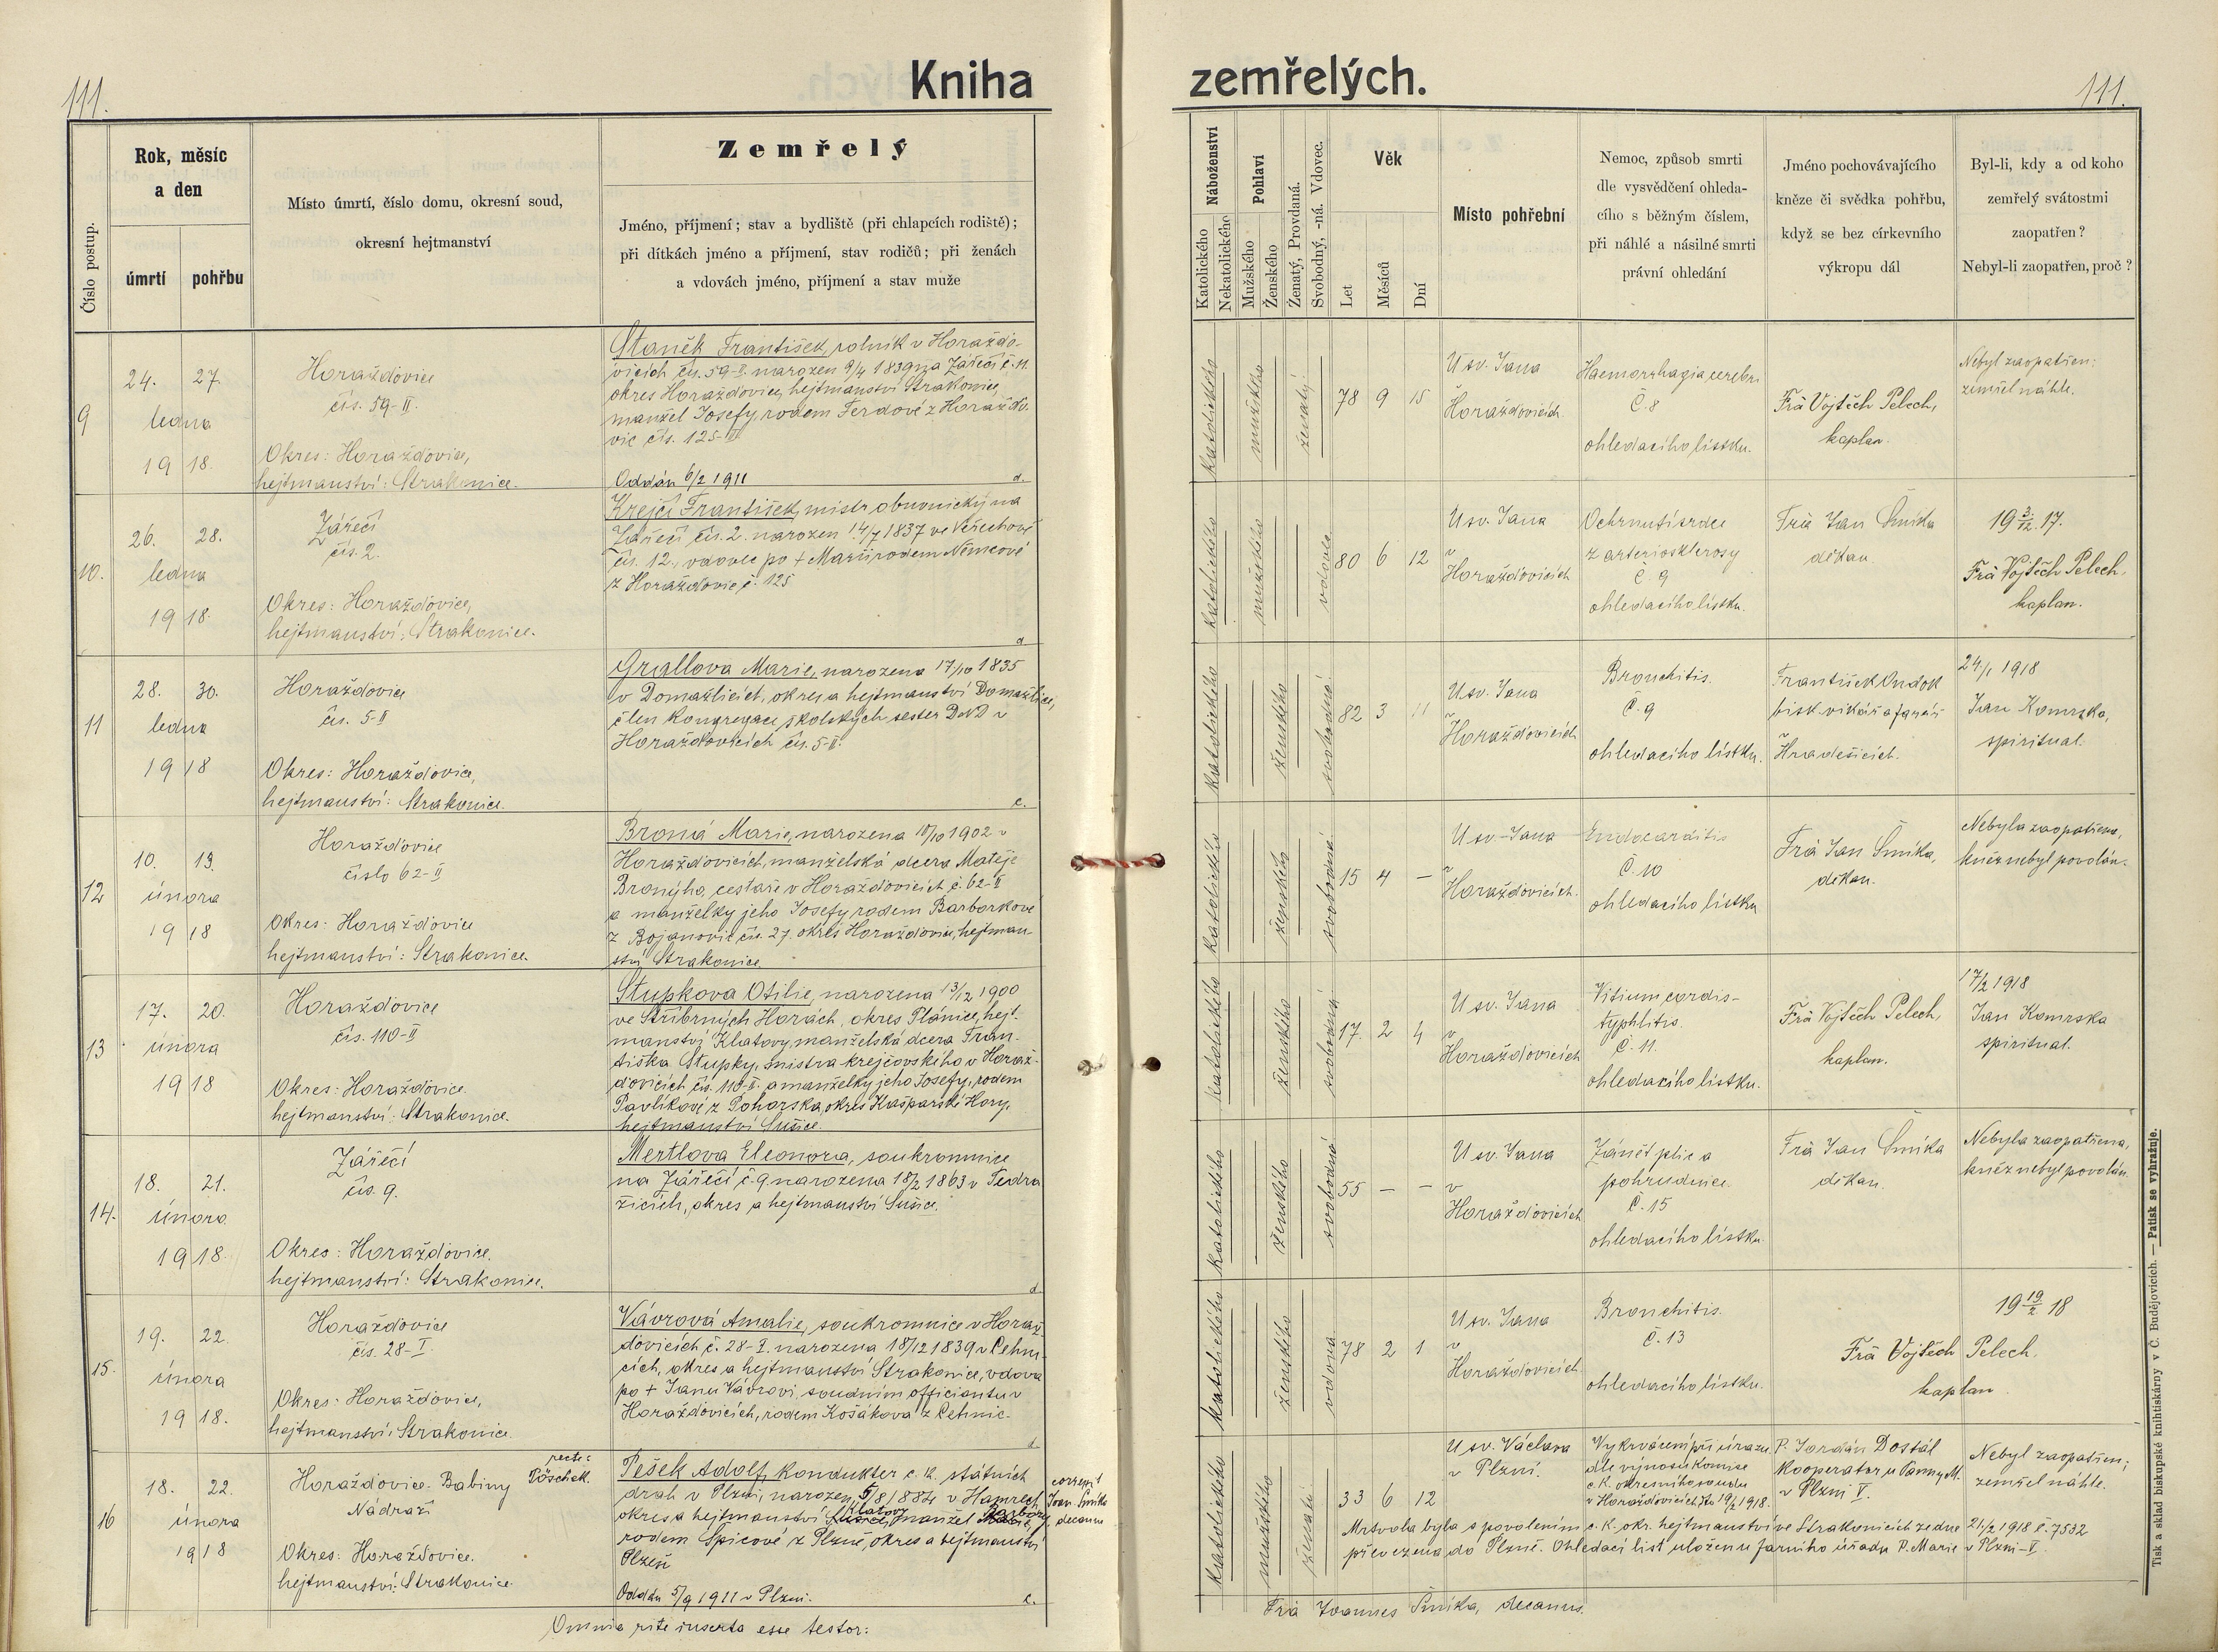 111.
Kniha
Rok, měsíc
a den
Číslo postup.
úmrtí
pohřbu
Místo úmrtí, číslo domu, okresní soud,
okresní hejtmanství
Zemřelý
Jméno, příjmení; stav a bydliště (při chlapcích rodiště);
při dítkách jméno a příjmení, stav rodičů; při ženách
a vdovách jméno, příjmení a stav muže
9
24. 27.
ledna
19 18.
Horažďovice
čís. 59-II.
Okres: Horažďovice,
hejtmanství: Strakonice.
Staněk František, rolník v Horažďo-
vicích čís. 59-II. narozen 9/4 1839 na Zářečí č. 11.
okres Horažďovice, hejtmanství Strakonice,
manžel Josefy, rodem Ferdové z Horažďo-
vic čís. 125-II
Oddán 6/2 1911
d.
10.
26. 28.
ledna
19 18.
Zářečí
čís. 2.
Okres: Horažďovice,
hejtmanství: Strakonice.
Krejčí František, mistr obuvnický na
Zářečí čís. 2. narozen 14/7 1837 ve Veřechově
čís. 12., vdovec po + Marii, rodem Němcové
z Horažďovic č. 125
d
11
28. 30.
ledna
19 18
Horažďovice
čís. 5-II
Okres: Horažďovice,
hejtmanství: Strakonice.
Grallova Marie, narozena 17/10 1835
v Domažlicích, okres a hejtmanství Domažlice,
člen Kongregace školských sester DND v
Horažďovicích čís. 5-II.
c.
12
10. 13.
února
19 18
Horažďovice
číslo 62-II
Okres: Horažďovice
hejtmanství: Strakonice.
Broná Marie, narozena 10/10 1902 v
Horažďovicích, manželská dcera Matěje
Bronýho, cestáře v Horažďovicích č. 62-II
a manželky jeho Josefy, rodem Barborkové
z Bojanovic čís. 27. okres Horažďovice, hejtman-
ství Strakonice.
13
17. 20.
února
19 18
Horažďovice
čís. 110-II
Okres: Horažďovice.
hejtmanství: Strakonice.
Stupkova Otilie, narozena 13/12 1900
ve Stříbrných Horách, okres Plánice, hejt-
manství Klatovy, manželská dcera Fran-
tiška Stupky, mistra krejčovského v Horaž-
ďovicích čís. 110-II. a manželky jeho Josefy, rodem
Pavlíkové z Pohorska, okres Kašparské Hory,
hejtmanství Sušice.
14.
18. 21.
února
19 18.
Zářečí
čís. 9.
Okres: Horažďovice.
hejtmanství: Strakonice.
Mertlova Eleonora, soukromnice
na Zářečí č. 9 narozena 18/2 1863 v Tedra
žicích, okres a hejtmanství Sušice.
d.
15.
19. 22.
února
19 18.
Horažďovice
čís. 28-I.
Okres: Horažďovice,
hejtmanství: Strakonice.
Vávrová Amalie, soukromnice v Horaž-
ďovicích č. 28-I. narozena 18/12 1839 v Cehni-
cích, okres a hejtmanství Strakonice, vdova
po + Janu Vávrovi, soudním officiantu v
Horažďovicích, rodem Košákova z Cehnic.
d.
16
18. 22.
února
19 18
Horažďovice-Babiny
Nádraží
Okres: Horažďovice.
hejtmanství: Strakonice.
recte:
Pöschek.
Pešek Adolf, kondukter c. k. státních
drah v Plzni, narozen 5/8 1884 v Hamrech,
okres a hejtmanství Klatov manžel Barbory,
rodem Špicové z Plzně, okres a hejtmanství
Plzeň
Oddán 5/9 1911 v Plzni.
c.
correxit
Joan. Šmíka
decanus
Omnia rite inserta esse testor:
zemřelých.
111.
Náboženství
Katolického
Nekatolického
Pohlaví
Mužského
Ženského
Ženatý, Provdaná.
Svobodný, -ná. Vdovec.
Věk
Let
Měsíců
Dní
Místo pohřební
Nemoc, způsob smrti
dle vysvědčení ohleda-
cího s běžným číslem,
při náhlé a násilné smrti
právní ohledání
Jméno pochovávajícího
kněze či svědka pohřbu,
když se bez církevního
výkropu dál
Byl-li, kdy a od koho
zemřelý svátostmi
zaopatřen?
Nebyl-li zaopatřen, proč?
katolického
mužského
ženatý
78 9 15
U sv. Jana
v
Horažďovicích.
Haemorrhagia cerebri
Č. 8
ohledacího lístku.
Frà Vojtěch Pelech,
kaplan.
Nebyl zaopatřen:
zemřel náhle.
katolického
mužského
vdovec
80 6 12
U sv. Jana
v
Horažďovicích
Ochrnutí srdce
z arteriosklerosy
č. 9
ohledacího lístku.
Frà Jan Šmíka
děkan
19 3/12. 17.
Frà Vojtěch Pelech,
kaplan.
katolického
ženského
svobodná
82 3 11
U sv. Jana
v
Horažďovicích
Bronchitis.
Č. 9
ohledacího lístku.
František Ondok
bisk. vikář a farář
v
Hradešicích.
24/1 1918
Jan Komrska,
spirituál.
katolického
ženského
svobodná
15 4 —
U sv. Jana
v
Horažďovicích.
Endocarditis
Č. 10
ohledacího lístku
Frà Jan Šmíka,
děkan.
Nebyla zaopatřena,
kněz nebyl povolán.
katolického
ženského
svobodná
17. 2 4
U sv. Jana
v
Horažďovicích
Vitium cordis-
typhlitis.
Č. 11.
ohledacího lístku.
Frà Vojtěch Pelech,
kaplan.
17/2 1918
Jan Komrska
spirituál.
katolického
ženského
svobodná
55 — —
U sv. Jana
v
Horažďovicích
Zánět plic a
pohrudnice.
Č. 15
ohledacího lístku.
Frà Jan Šmíka
děkan.
Nebyla zaopatřena,
kněz nebyl povolán
katolického
ženského
vdova
78 2 1
U sv. Jana
v
Horažďovicích.
Bronchitis.
Č. 13
ohledacího lístku.
19 19/2 18
Frà Vojtěch Pelech.
kaplan
katolického
mužského
ženatý
33 6 12
U sv. Václava
v Plzni.
Vykrvácení při úrazu
dle výnosu komise
c. k. okresního soudu
v Horažďovicích dto 19/2 1918.
P. Jordán Dostál
kooperator u Panny M.
v Plzni V.
Nebyl zaopatřen;
zemřel náhle.
Mrtvola byla s povolením c. k. okr. hejtmanství ve Strakonicích ze dne 21/2 1918 č. 7532
převezena do Plzně. Ohledací list uložen u farního úřadu P. Marie v Plzni-V.
Frà Joannes Šmíka, decanus.
Tisk a sklad biskupské knihtiskárny v Č. Budějovicích. — Patisk se vyhražuje.